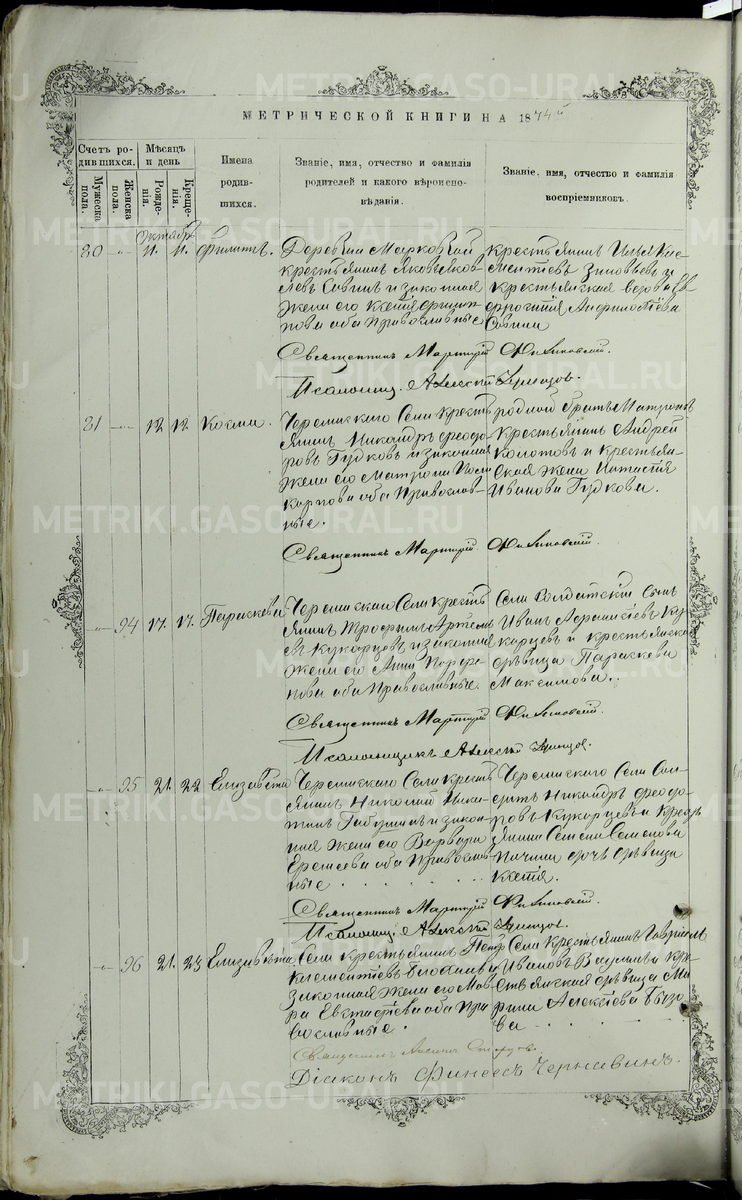 МЕТРИЧЕСКОЙ КНИГИ НА 1874й
Счетъ родившихся.
Мѣсяцъ и день
Мужеска пола.
Женска пола.
Рожденія.
Крещенія.
Имена родившихся.
Званіе, имя, отчество и фамилія
родителей и какого вѣроиспо-
вѣданія.
Званіе, имя, отчество и фамилія
воспріемниковъ.
Октябрь
80 11. 11. Филиппъ.
Деревни Марковской
крестьянинъ Яковъ Яков-
левъ Савинъ и законная
жена его
оба Православные
Крестьянинъ Илья Кле-
ментьевъ Зиновьевъ и
крестьянская вдова
Савина
Священникъ Мартирій Филиповскій.
Псаломщ. Алексѣй
81 12 12 Косма.
Черемискаго Села кресть-
янинъ Никандръ Ѳеодо-
ровъ Гудковъ и законная
жена его Матрона Поли-
карпова оба Православ-
ные.
родной братъ Матроны
Крестьянинъ Андрей
Колотовъ и крестьян-
ская жена Настасія
Иванова Гудкова.
Священникъ Мартирій Филиповскій.
94 17. 17. Параскева
Черемискаго Села кресть-
янинъ Трофимъ Артемь-
евъ Кукарцевъ и законная
жена его Анна
оба Православные.
Села Солдатскій сынъ
Иванъ Аѳанасіевъ Ку-
карцевъ и крестьянская
дѣвица Параскева
Максимова.
Священникъ Мартирій Филиповскій.
Псаломщикъ Алексѣй
95 21. 22 Елизавета
Черемискаго Села кресть-
янинъ Николай Ники-
тинъ и закон-
ная жена его Варвара
Ереміева оба Православ-
ные
Черемискаго Села Сол-
датъ Никандръ Ѳеодо-
ровъ Кукарцевъ и кресть-
янина Семена Семенова
дочь дѣвица
Священникъ Мартирій Филиповскій.
Псаломщ. Алексѣй
96 21. 23 Елизавета
Села крестьянинъ Петръ
Климентіевъ и
законная жена его Мав-
ра Евстафіева оба Пра-
вославные.
Села Крестьянинъ Гавріилъ
Ивановъ и кре-
стьянская дѣвица Ма-
рина Алексіева
Священникъ
Діаконъ Финеесъ Чернавинъ.
METRIKI.GASO-URAL.RU